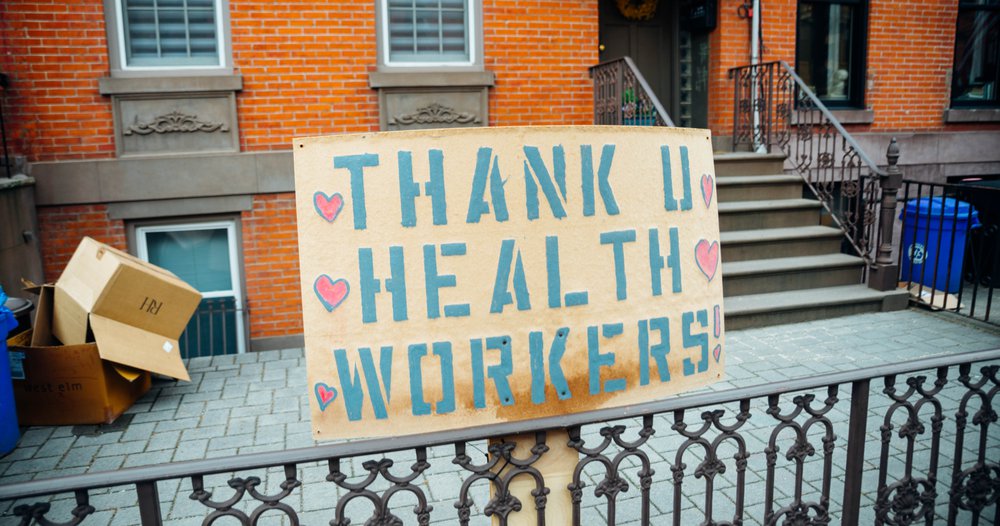 THANK U
HEALTH
WORKERS!
west elm